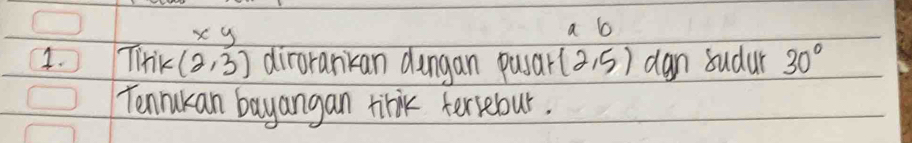 x y a b
1. Titik (2,3) dirotarikan dengan pusat (2,5) dan sudut 30°
Tentukan bayangan titik tersebut.